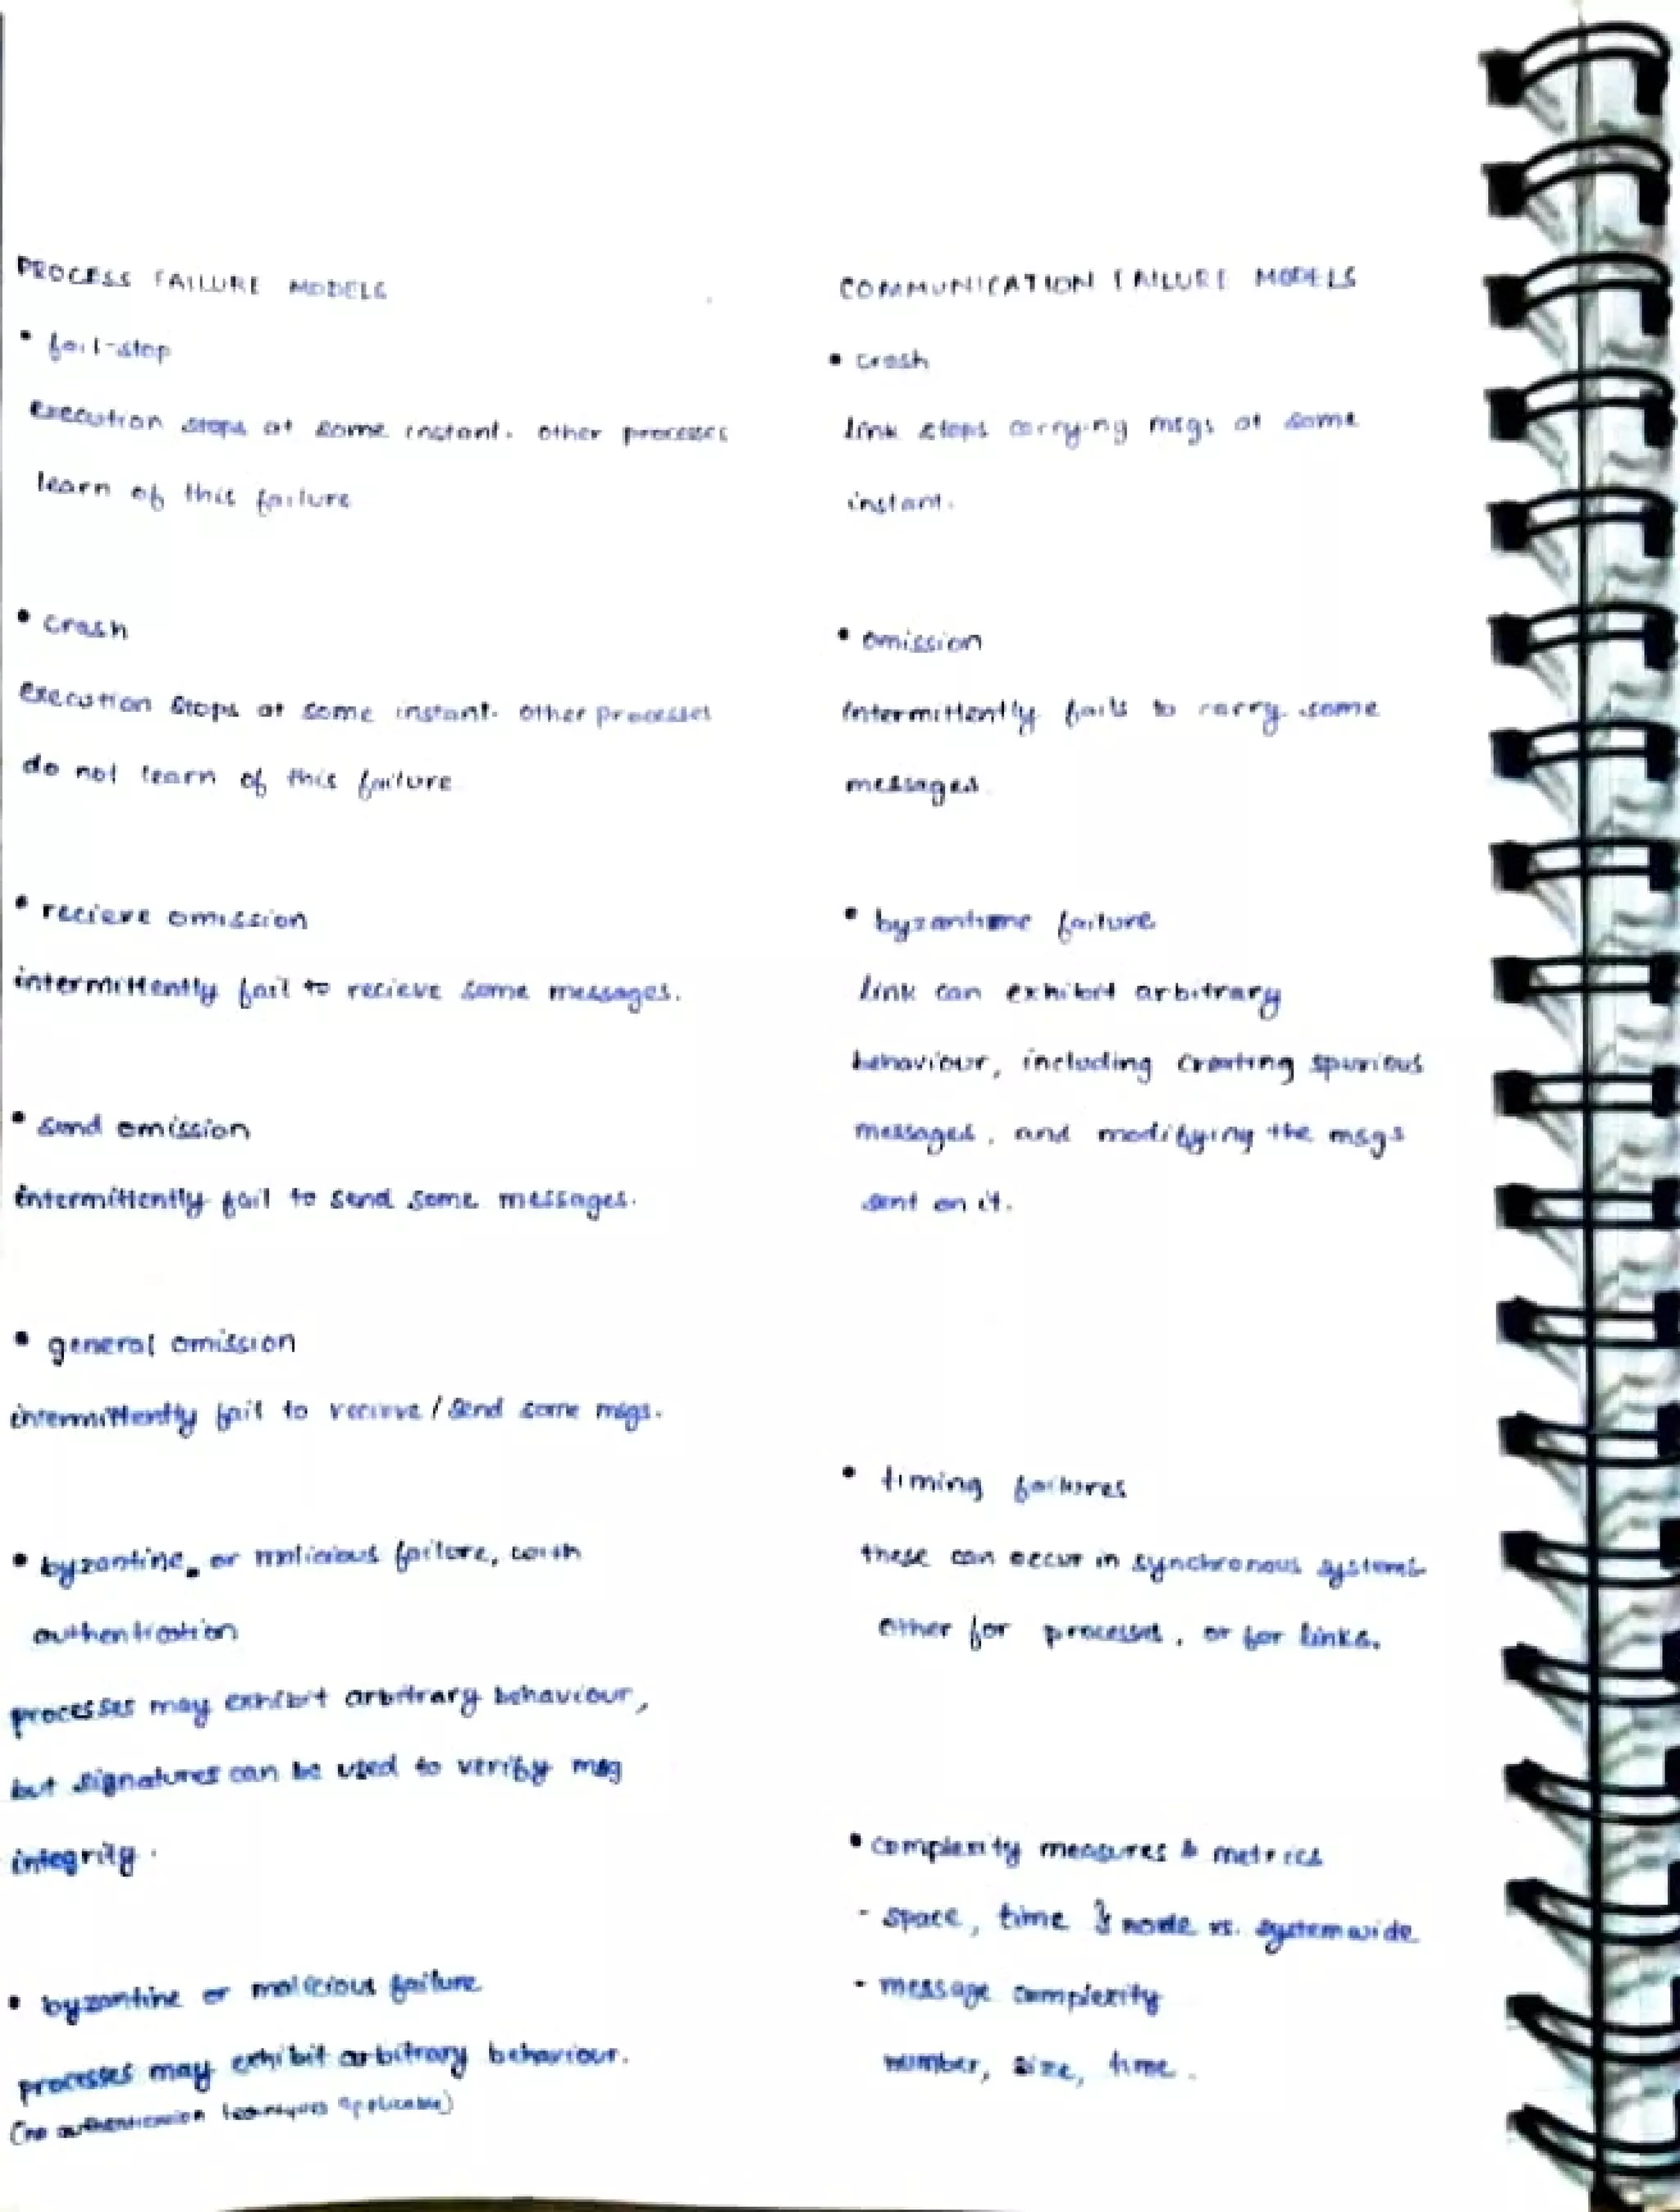 PROCESS FAILURE MODELS
• fail-stop
execution stops at some instant. other processes
learn of this failure
• crash
execution stops at some instant. other processes
do not learn of this failure
• recieve omission
intermittently fail to recieve some messages.
• send omission
intermittently fail to send some messages.
• general omission
intermittently fail to recieve / send some msgs.
• byzantine, or malicious failure, with
authentication
processes may exhibit arbitrary behaviour,
but signatures can be used to verify msg
integrity.
• byzantine or malicious failure
processes may exhibit arbitrary behaviour.
(no authentication techniques applicable)
COMMUNICATION FAILURE MODELS
• crash
link stops carrying msgs at some
instant.
• omission
intermittently fails to carry some
messages.
• byzantine failure
link can exhibit arbitrary
behaviour, including creating spurious
messages, and modifying the msgs
sent on it.
• timing failures
these can occur in synchronous systems
either for processes, or for links.
• complexity measures & metrics
- space, time & node vs. systemwide
- message complexity
number, size, time.